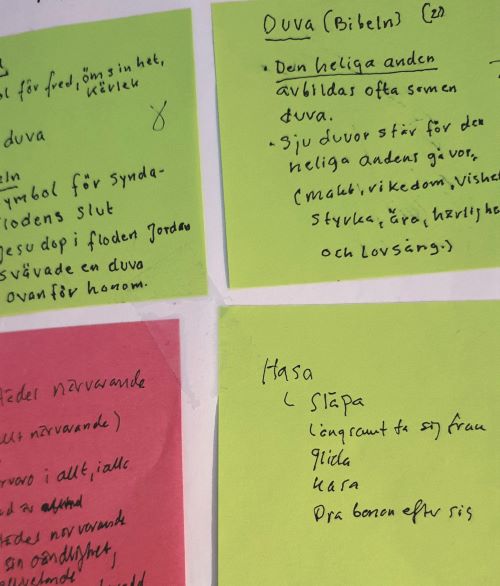 för fred, ömsinhet,
kärlek
duva
symbol för synda-
flodens slut
Jesu dop i floden Jordan
svävade en duva
ovanför honom.
Duva (Bibeln) (2)
• Den heliga anden
avbildas ofta som en
duva.
• Sju duvor står för den
heliga andens gåvor.
(makt, rikedom, vishet
styrka, ära, härlighe
och Lovsång.)
närvarande
närvarande)
i allt, i alla
närvarande
sin oändlighet,
Hasa
Släpa
Långsamt ta sig fram
glida
Hasa
Dra benen efter sig